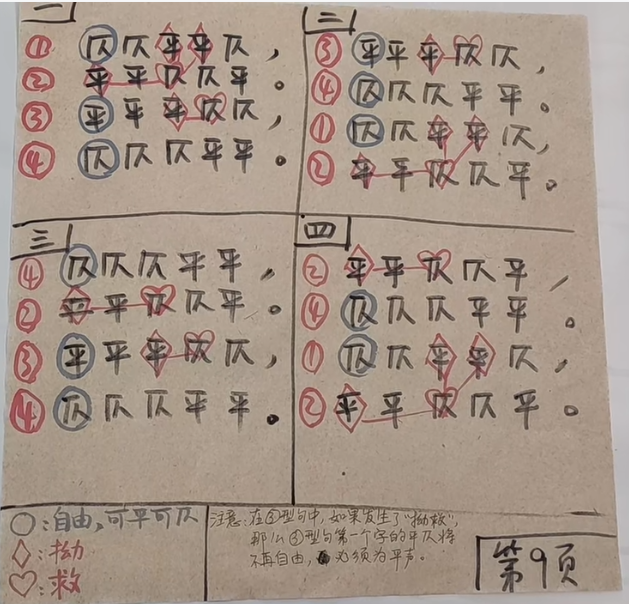 一
①仄仄平平仄，
②平平仄仄平。
③平平平仄仄，
④仄仄仄平平。
二
③平平平仄仄，
④仄仄仄平平。
①仄仄平平仄，
②平平仄仄平。
三
④仄仄仄平平，
②平平仄仄平。
③平平平仄仄，
④仄仄仄平平。
四
②平平仄仄平，
④仄仄仄平平。
①仄仄平平仄，
②平平仄仄平。
○:自由,可平可仄
◇:拗
♡:救
注意:在③型句中,如果发生了"拗救",
那么③型句第一个字的平仄将
不再自由,必须为平声。
第9页